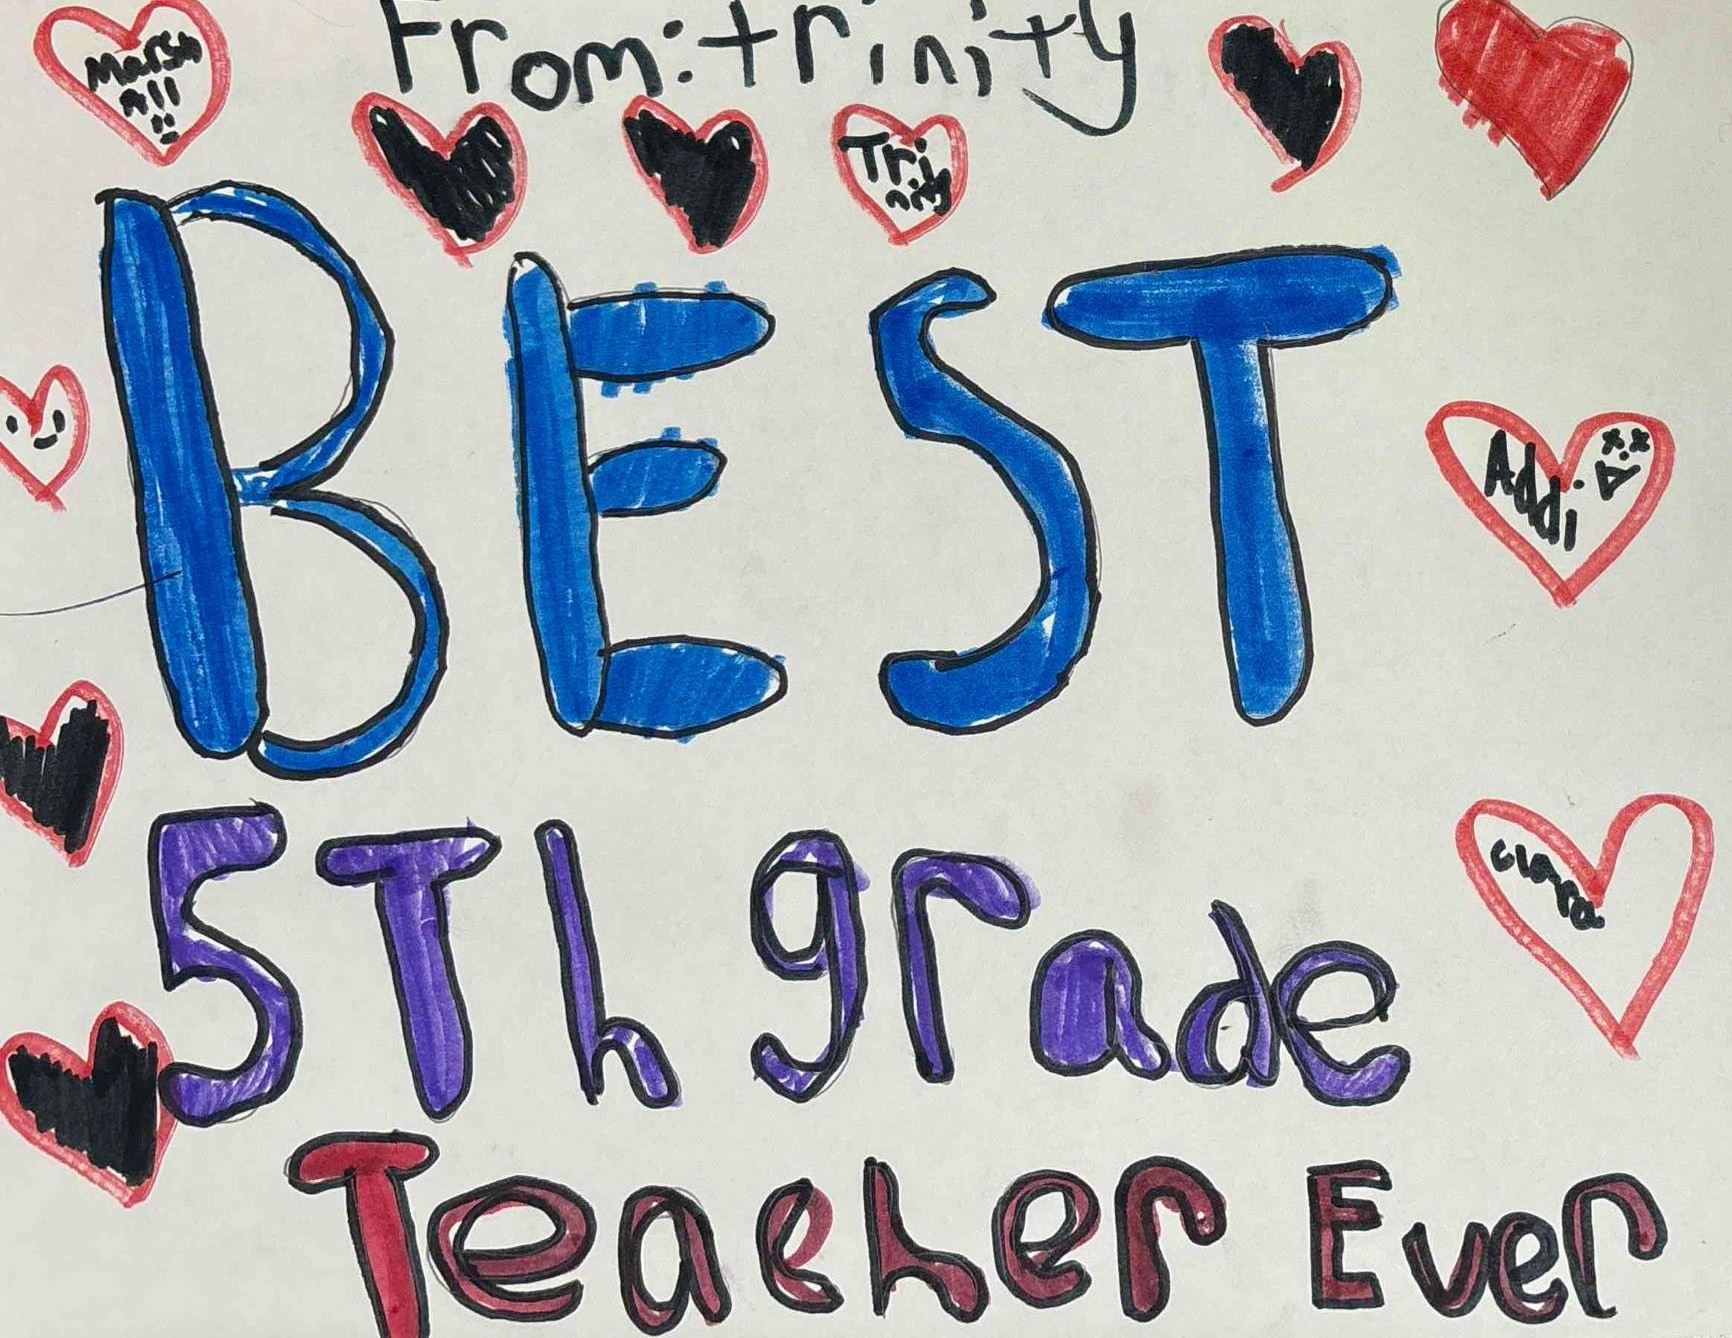 From: trinity
Marsh
All!!
Tri
nity
BEST
Addi
5Th grade
clara
Teacher Ever